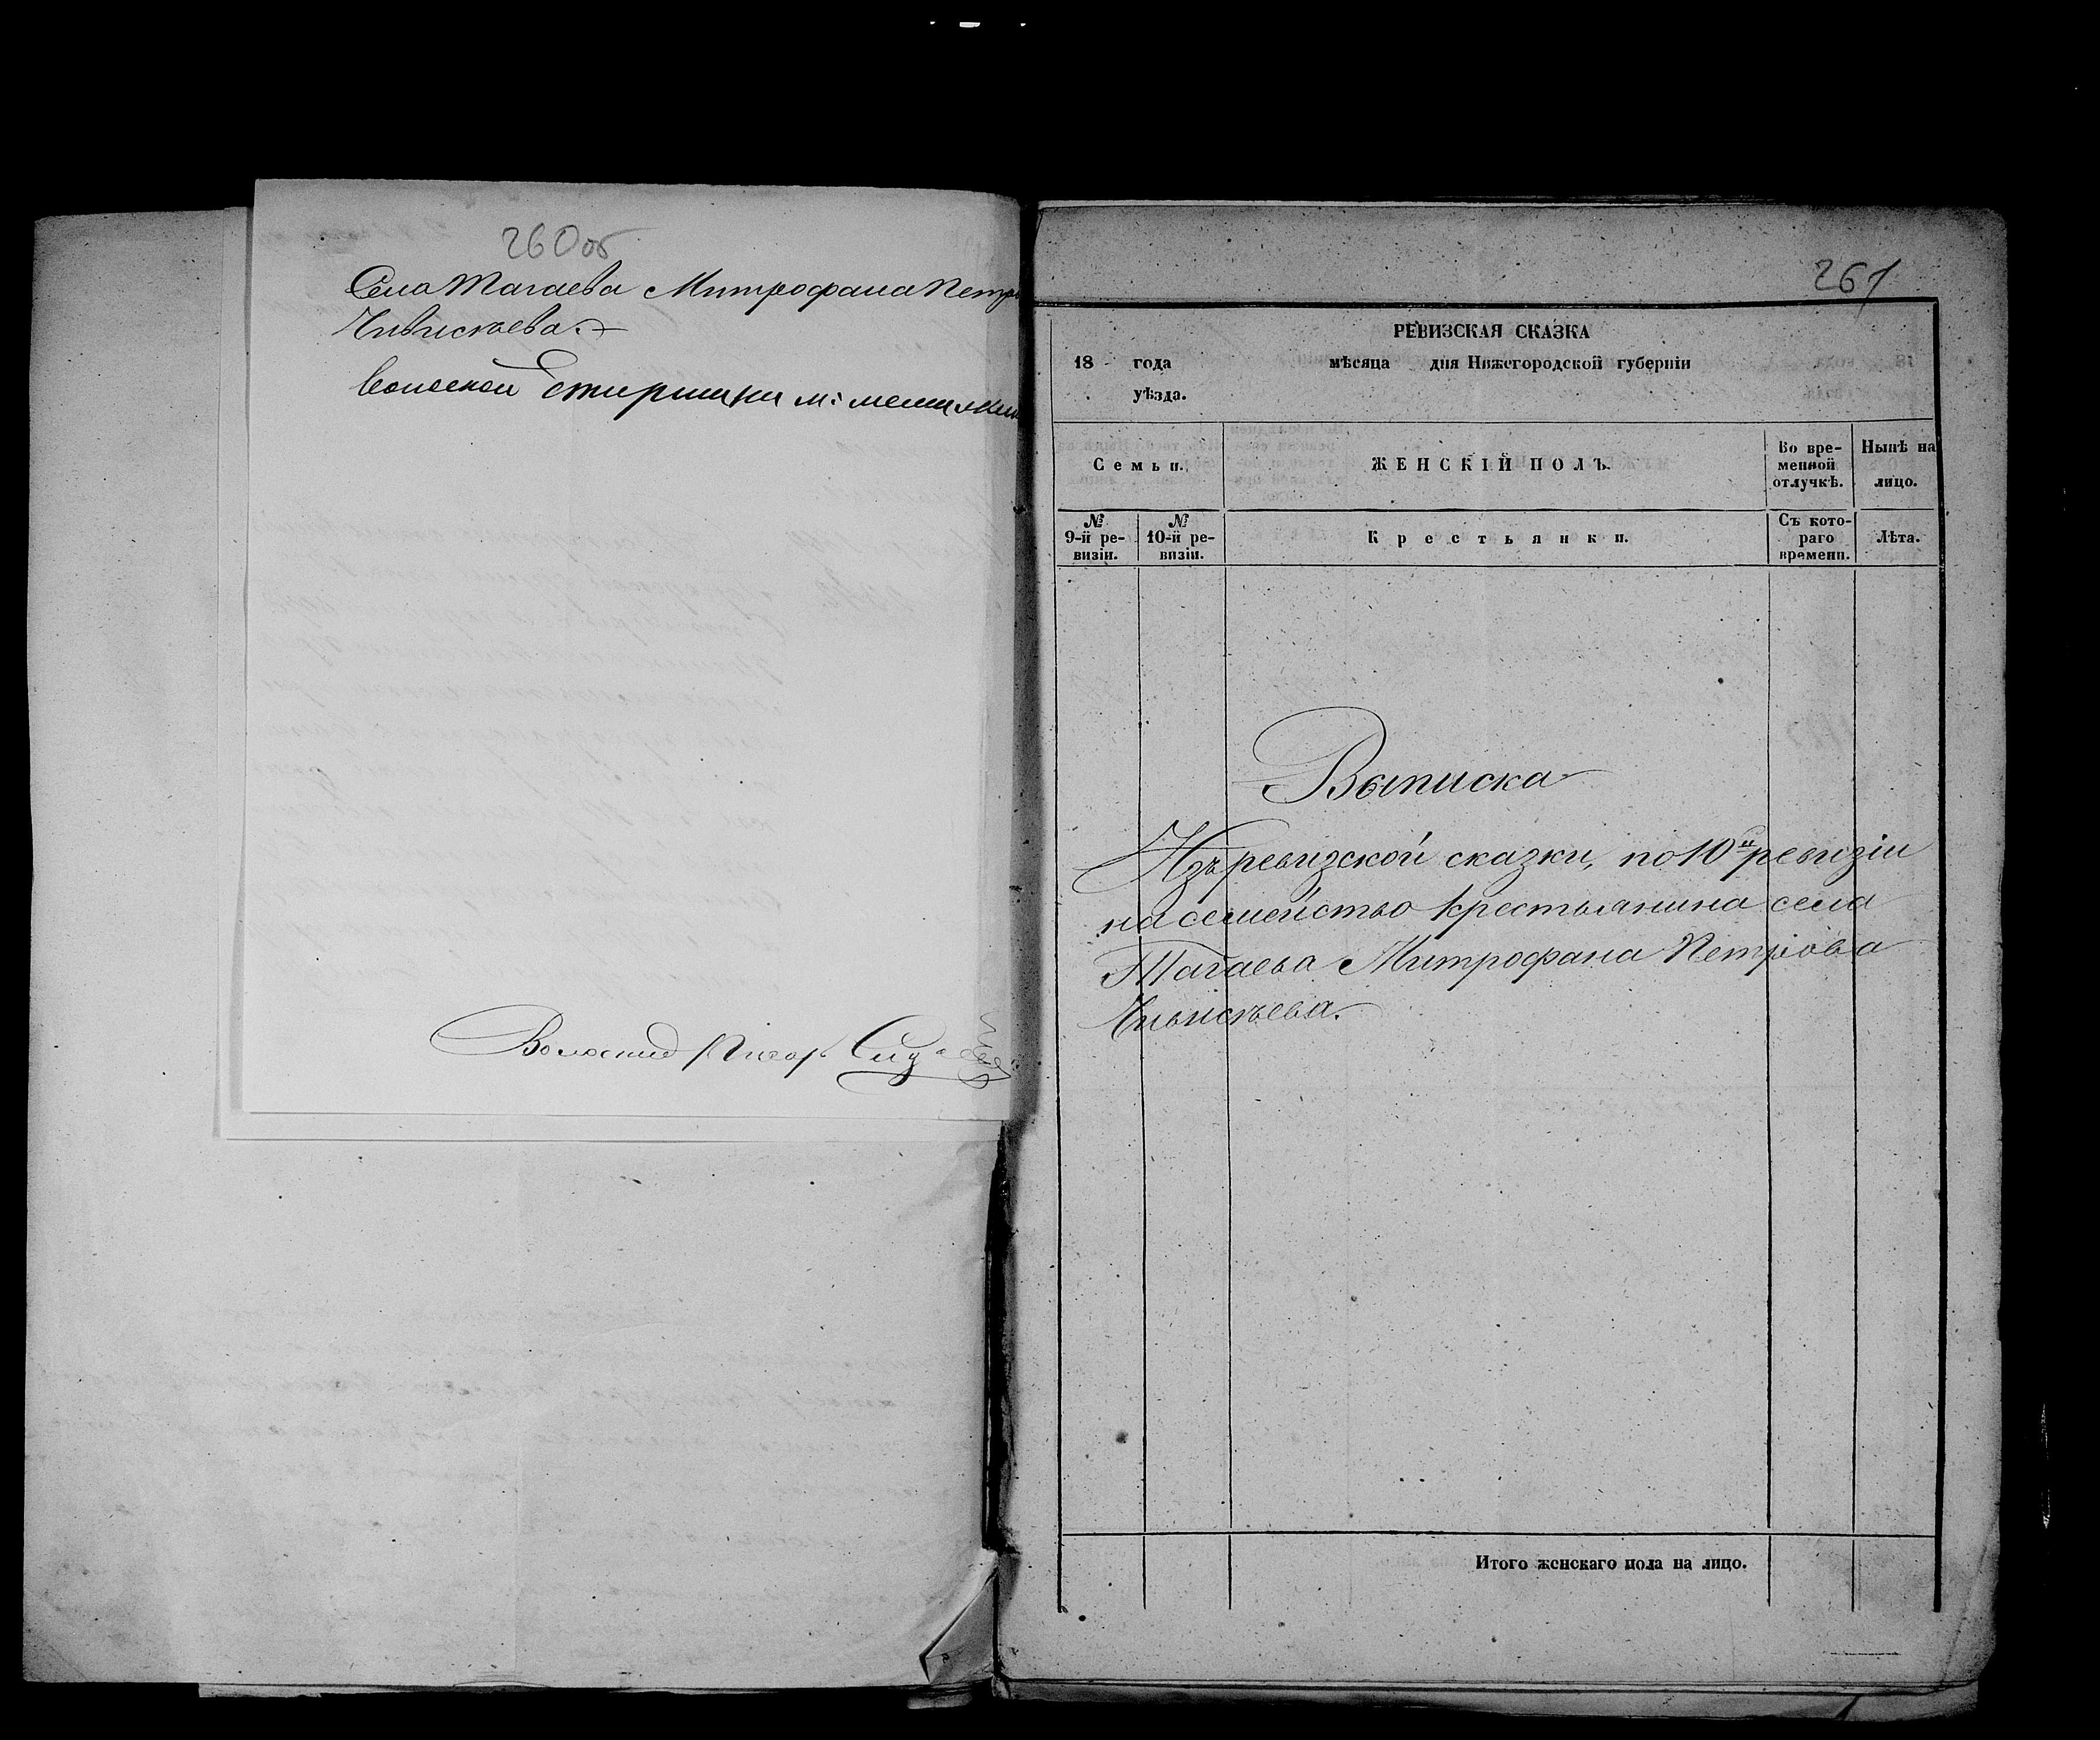 260об
Села Тагаева Митрофана Петро
Чивискаева.
Волосной Старшина М:
Волостной Писарь
261
РЕВИЗСКАЯ СКАЗКА
18 года мѣсяца дня Нижегородской губерніи
уѣзда.
Семьи. ЖЕНСКІЙ ПОЛЪ. Во временной отлучкѣ. Нынѣ на лицо.
№ 9-й ревизіи. № 10-й ревизіи. Крестьянки. Съ котораго времени. Лѣта.
Выписка
Изъ ревизской сказки, по 10й ревизіи
на семейство крестьянина села
Тагаева Митрофана Петрова
Чивискаева.
Итого женскаго пола на лицо.